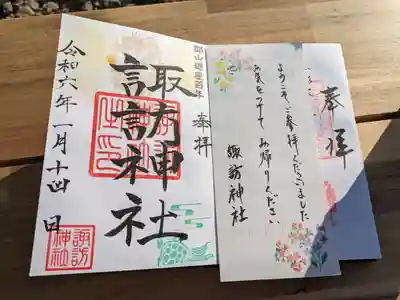 奉拝
ようこそご参拝くださいました
お気をつけて お帰りください
諏訪神社
奉拝
百年
諏訪神社
令和六年一月十四日
諏訪
神社